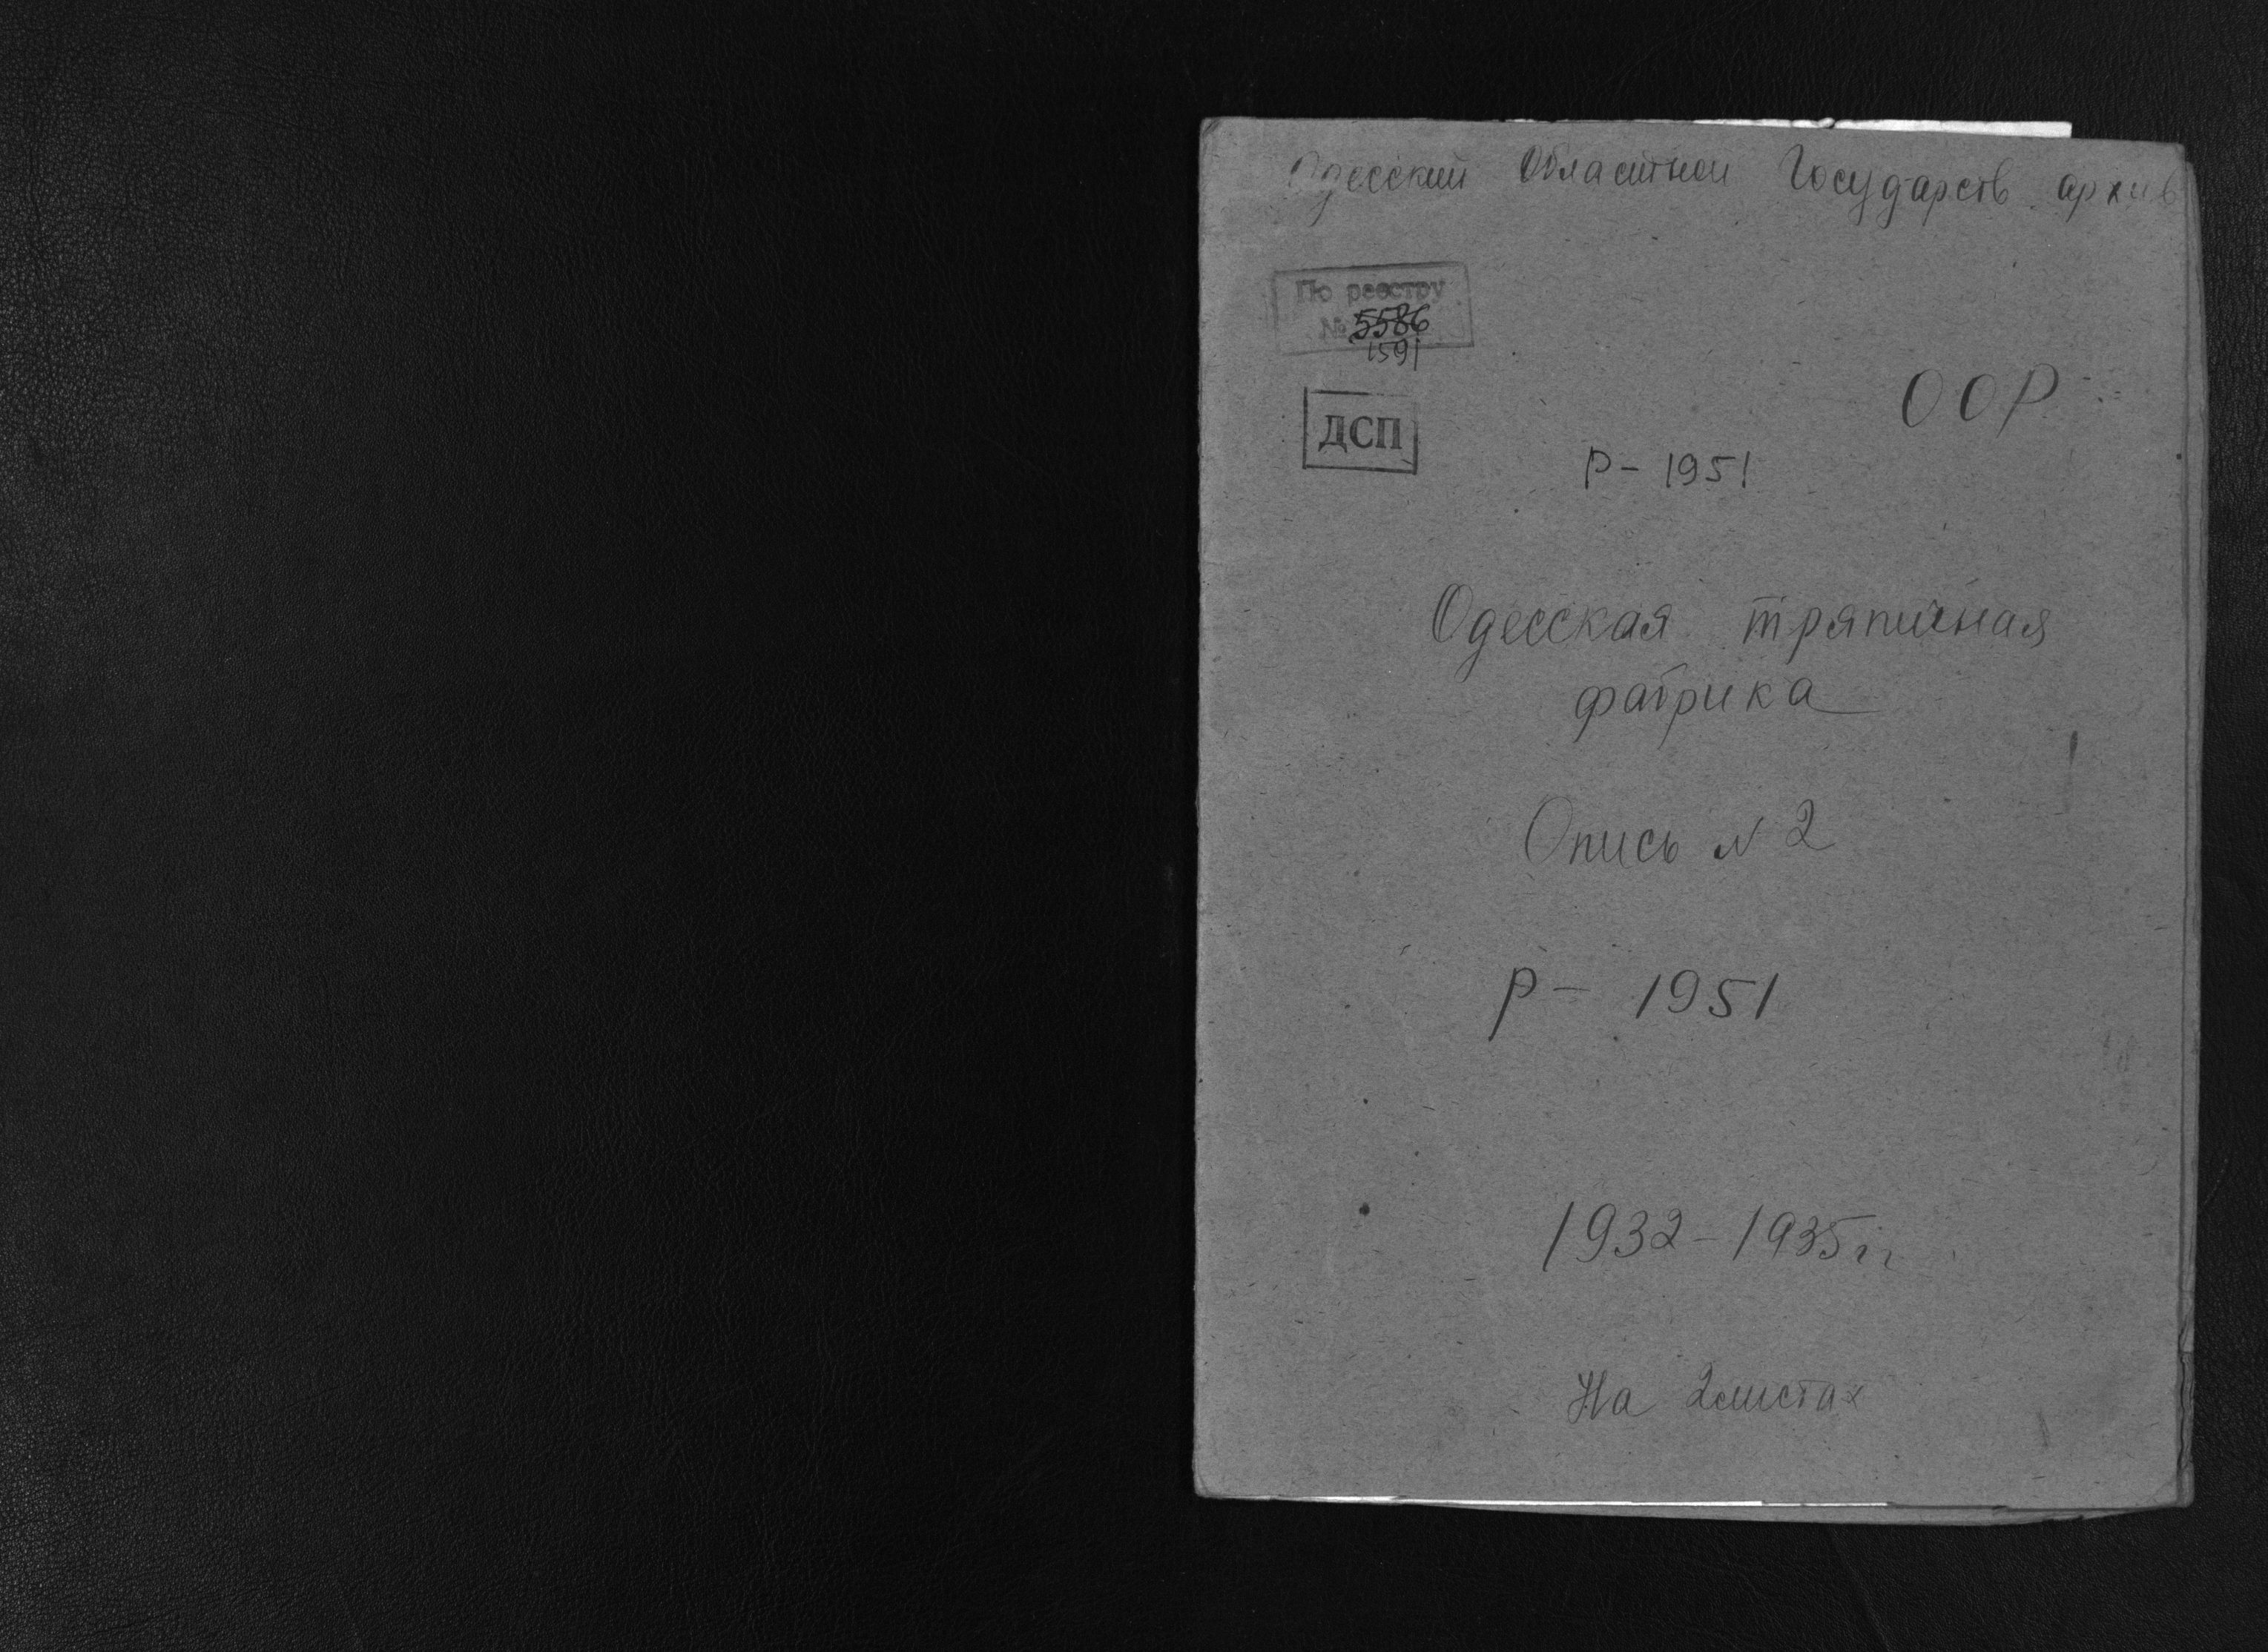 Одесский Областной Государств. архив
По реестру
№ 5586
1591
ООР
ДСП
Р- 1951
Одесская тряпичная
фабрика
Опись N 2
Р- 1951
1932-1935 гг.
На 2 листах